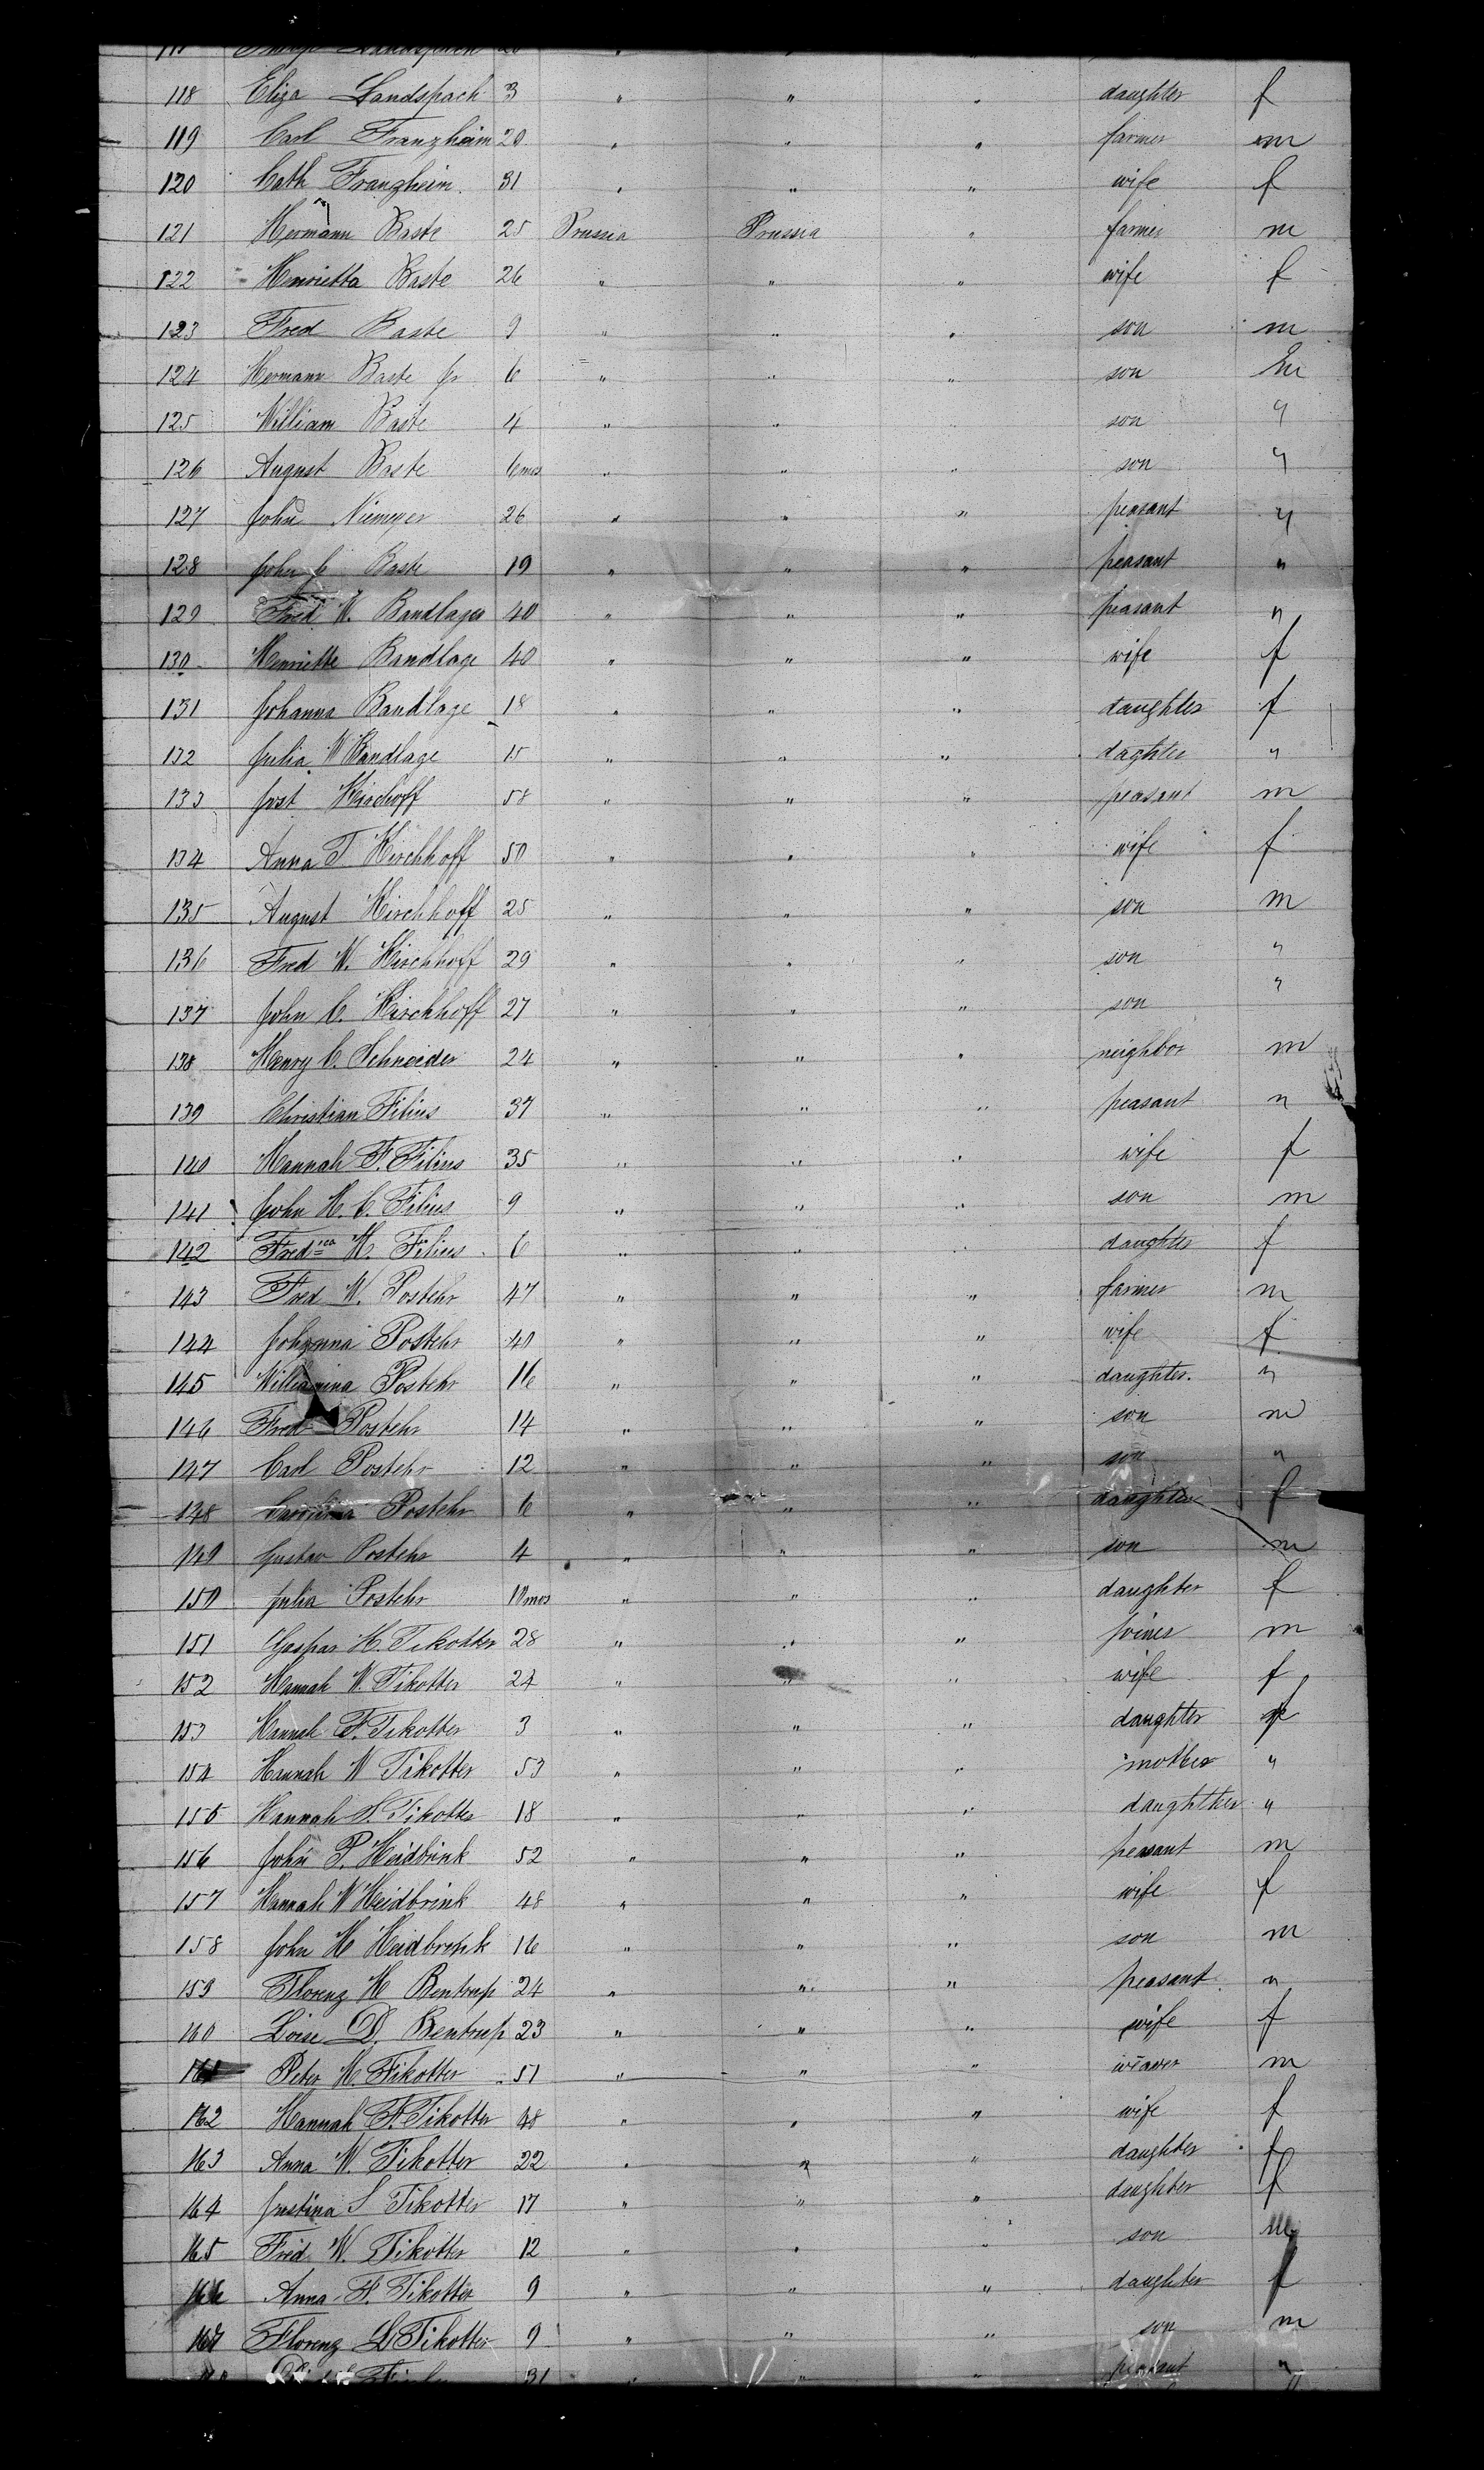 Landspach 20 " " "
118 Eliza Landspach 3 " " " daughter f
119 Carl Franzheim 20 " " " farmer m
120 Cath Franzheim 31 " " " wife f
121 Hermann Baste 25 Prussia Prussia " farmer m
122 Henrietta Baste 26 " " " wife f
123 Fred Baste 9 " " " son m
124 Hermann Baste jr 6 " " " son m
125 William Baste 4 " " son "
126 August Baste 6 mos " " " son "
127 John Niemeyer 26 " " " peasant "
128 John C Baste 19 " " " peasant "
129 Fred W. Bandlager 40 " " " peasant "
130 Henriette Bandlage 40 " " " wife f
131 Johanna Bandlage 18 " " " daughter f
132 Julia W Bandlage 15 " " " daghter "
133 Jost Kirchoff 58 " " " peasant m
134 Anna T Kirchhoff 50 " " " wife f
135 August Kirchhoff 25 " " " son m
136 Fred W. Kirchhoff 29 " " " son "
137 John C. Kirchhoff 27 " " " son "
138 Henry C. Schneider 24 " " " neighbor m
139 Christian Filius 37 " " " peasant "
140 Hannah F. Filius 35 " " " wife f
141 John H. C. Filius 9 " " " son m
142 Fredica H. Filius 6 " " " daughter f
143 Fred W. Postehr 47 " " " farmer m
144 Johanna Postehr 40 " " " wife f
145 Williamina Postehr 16 " " " daughter. "
146 Fred Postehr 14 " " " son m
147 Carl Postehr 12 " " " son "
148 Carolina Postehr 6 " " " daughter f
149 Gustav Postehr 4 " " " son m
150 Julia Postehr 10 mos " " " daughter f
151 Caspar H. Tikotter 28 " " " joiner m
152 Hannah W. Tikotter 24 " " " wife f
153 Hannah F. Tikotter 3 " " " daughter f
154 Hannah W Tikotter 53 " " " mother "
155 Hannah S. Tikotter 18 " " " daughther "
156 John P. Heidbrink 52 " " " peasant m
157 Hannah W Heidbrink 48 " " " wife f
158 John H Heidbrink 16 " " " son m
159 Florenz H Bentrup 24 " " " peasant "
160 Loise D. Bentrup 23 " " " wife f
161 Peter H. Tikotter 51 " " " weaver m
162 Hannah F. Tikotter 48 " " " wife f
163 Anna W. Tikotter 22 " " " daughter f
164 Justina S Tikotter 17 " " " daughter f
165 Fred W. Tikotter 12 " " " son m
166 Anna F. Tikotter 9 " " " daughter f
167 Florenz L Tikotter 9 " " " son m
31 " " " peasant "